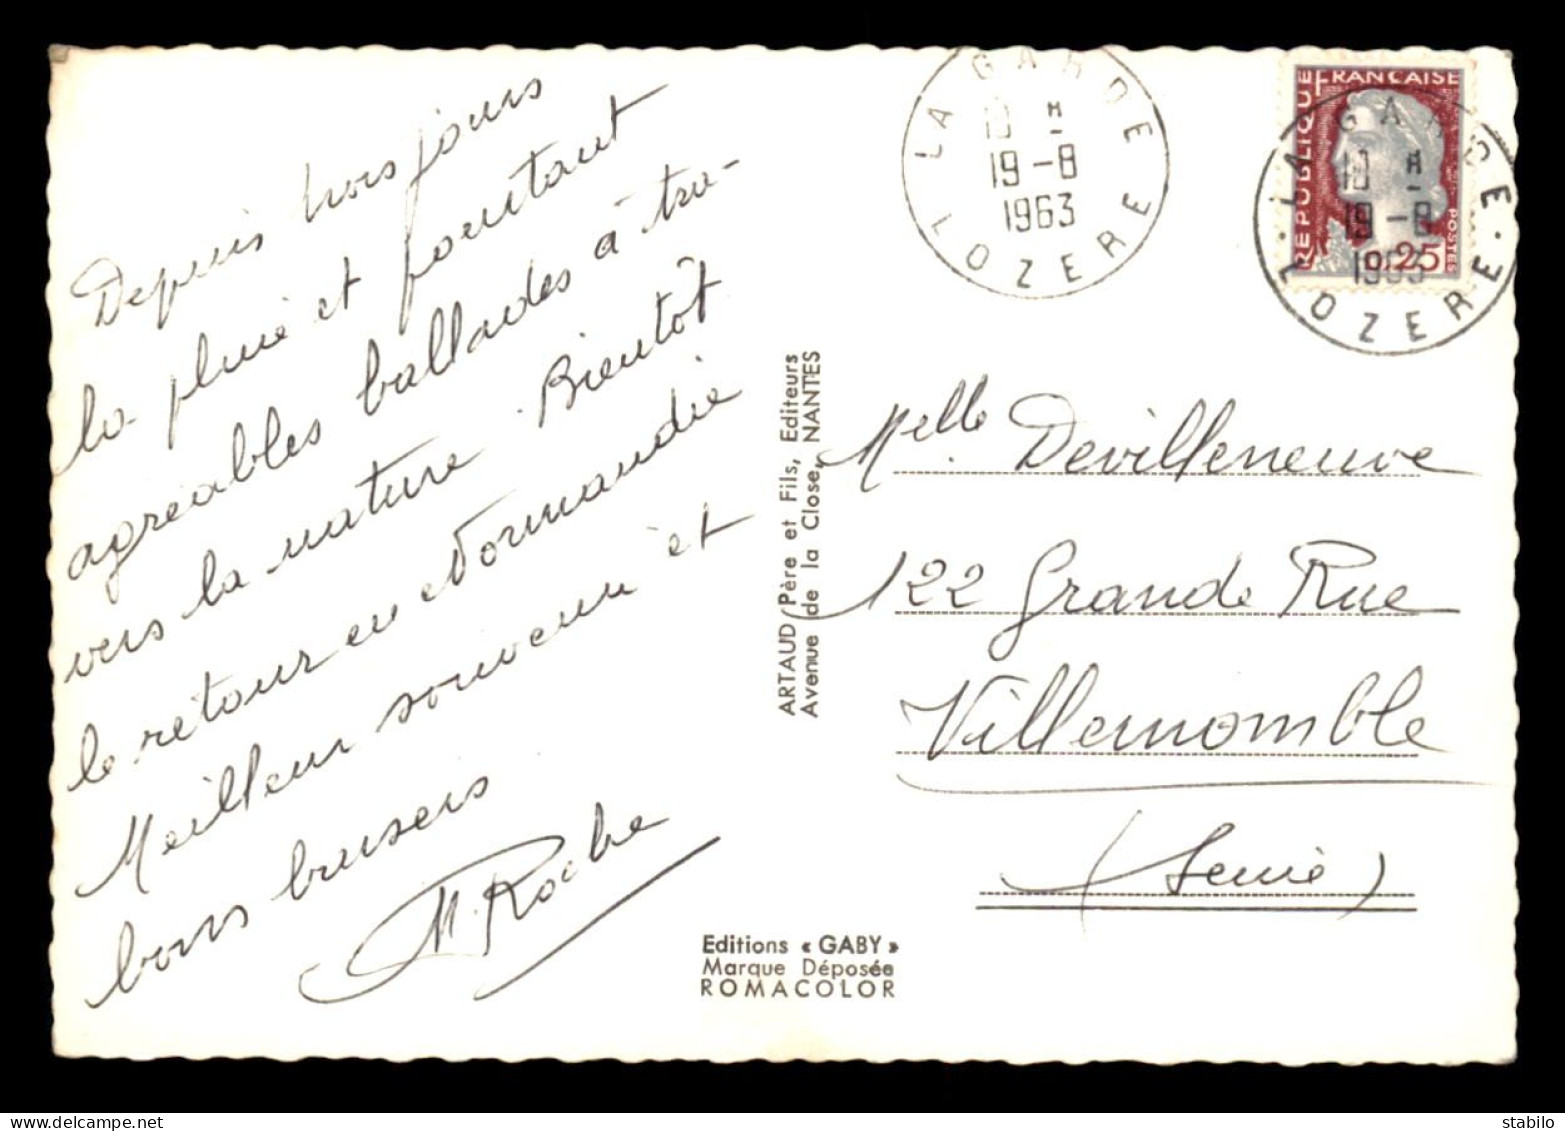 Depuis trois jours
la pluie et pourtant
agréables ballades à tra-
vers la nature. Bientôt
le retour en Normandie
Meilleur souvenir et
bons baisers
M. Roche
LA GARDE
18 H
19-8
1963
LOZERE
REPUBLIQUE FRANCAISE
POSTES
0,25
LA GARDE
18 H
19-8
1963
LOZERE
ARTAUD Père et Fils, Editeurs
Avenue de la Close, NANTES
Melle Devilleneuve
122 Grande Rue
Villemomble
(Seine)
Editions « GABY »
Marque Déposée
ROMACOLOR
delcampe.net
stabilo